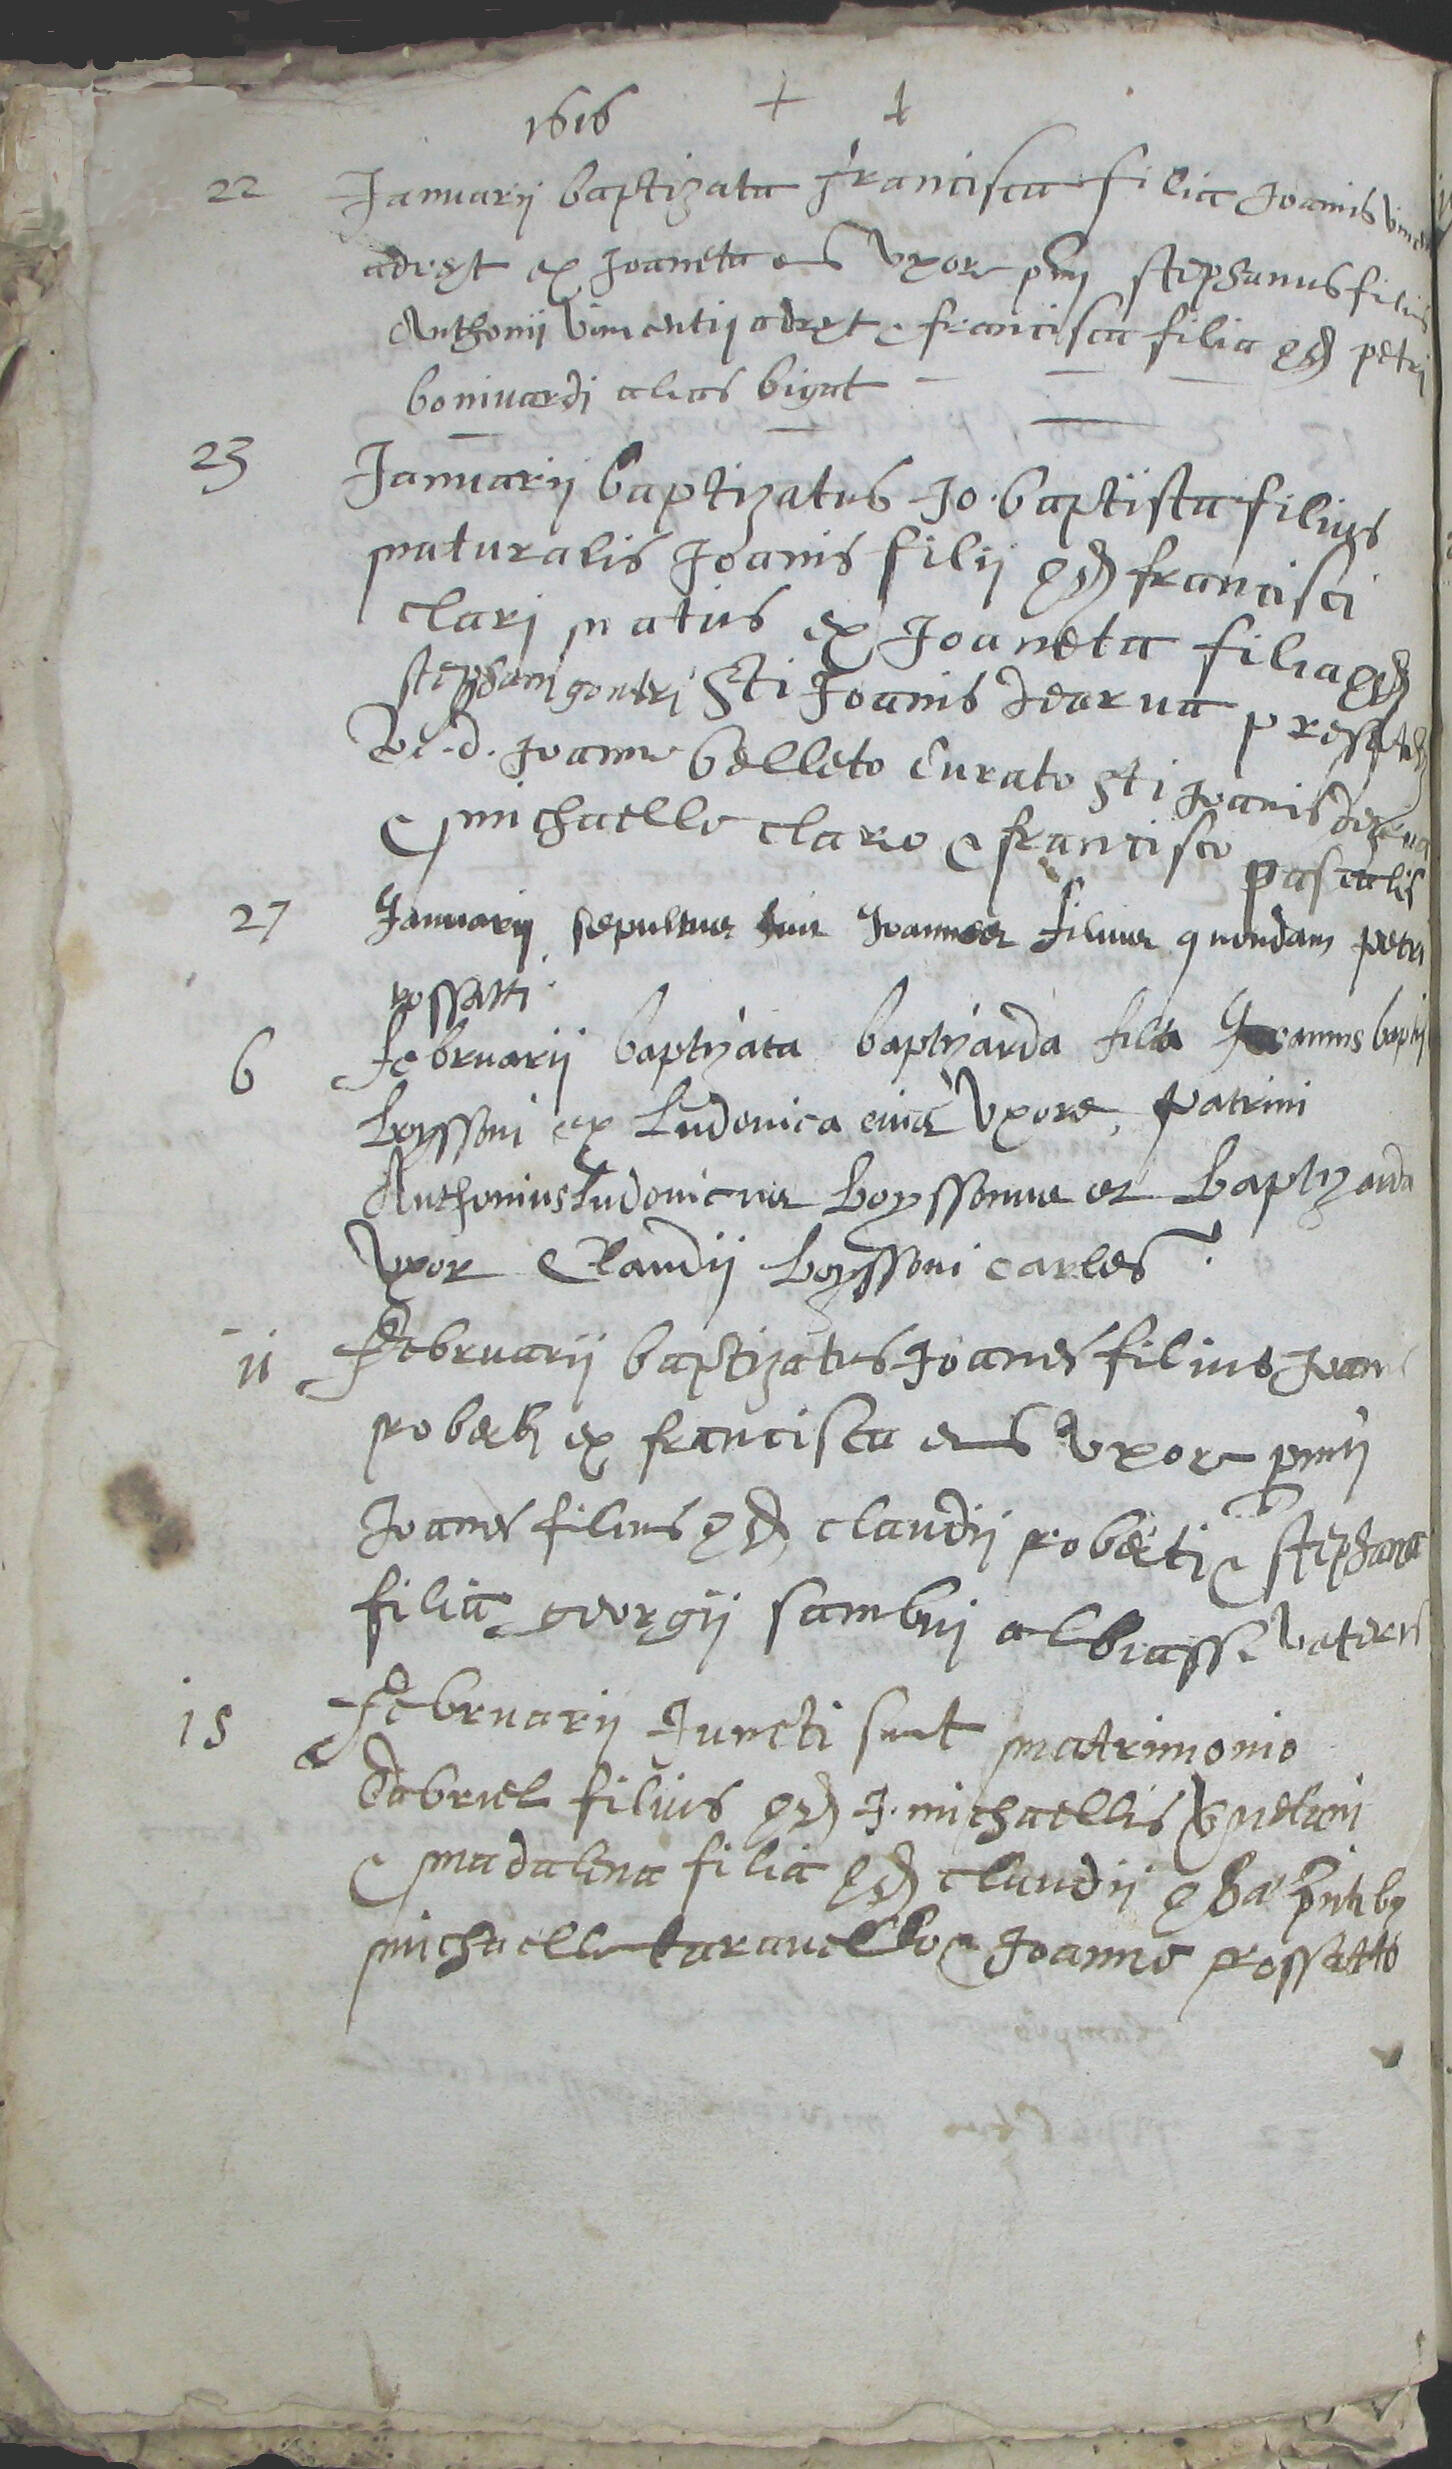 1616
22 Januarij baptizata francisca filia Joanis Vincen
adrayt ex Joaneta eius Vxore pnj stephanus filius
Anthonii Vincentij adrayt & francisca filia qdm petri
bonivardi alias bigat
23 Januarij baptizatus Jo. baptista filius
naturalis Joanis filij qdm francisci
clari natus ex Joaneta filia qdm
stephani gonteri Sti Joanis dearua
Ve. d. Joanne belleto Curato Sti Joanis dearua
& michaelle claro & francisco pascalis
27 Januarij sepultus fuit Joannes filius quondam petri
rossatti
6 februarij baptizata baptizarda filia Joannis bapti
boyssoni ex Ludovica eius Vxore, patrini
Anthonius Ludovicus boyssonus et baptizarda
Vxor Claudii boyssoni carles
11 februarij baptizatus Joanes filius Joan
roberti ex francisca eius Vxore pnij
Joanes filius qdm claudij roberti & stephana
filia georgij sambuj albiassi Veteris
15 februarij Juncti sunt matrimonio
Gabriel filius qdm J. michaellis
& madalena filia qdm claudij pntibus
michaelle taravello & Joanne rossatto